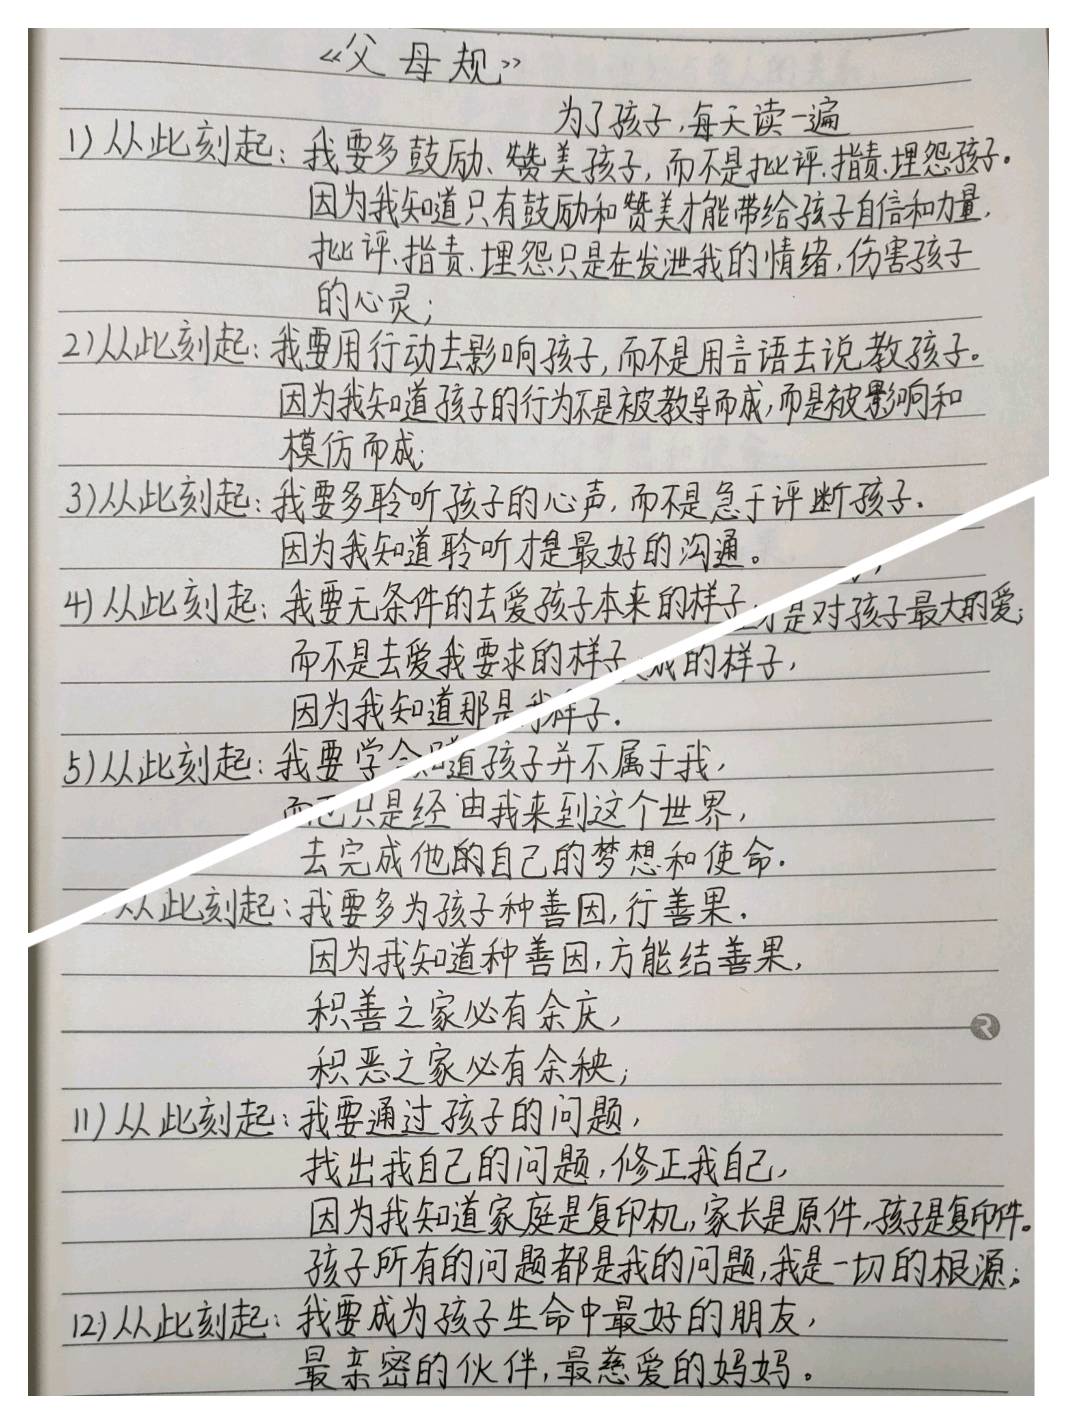 《父母规》
为了孩子,每天读一遍
1)从此刻起:我要多鼓励、赞美孩子,而不是批评、指责、埋怨孩子。
因为我知道只有鼓励和赞美才能带给孩子自信和力量,
批评、指责、埋怨只是在发泄我的情绪,伤害孩子
的心灵;
2)从此刻起:我要用行动去影响孩子,而不是用言语去说教孩子。
因为我知道孩子的行为不是被教导而成,而是被影响和
模仿而成;
3)从此刻起:我要多聆听孩子的心声,而不是急于评断孩子.
因为我知道聆听才是最好的沟通。
4)从此刻起:我要无条件的去爱孩子本来的样子
才是对孩子最大的爱;
而不是去爱我要求的样子
成的样子,
因为我知道那是我
样子.
5)从此刻起:我要学会
知道孩子并不属于我,
而
只是经由我来到这个世界,
去完成他的自己的梦想和使命.
从此刻起:我要多为孩子种善因,行善果.
因为我知道种善因,方能结善果,
积善之家必有余庆,
积恶之家必有余秧;
11)从此刻起:我要通过孩子的问题,
找出我自己的问题,修正我自己,
因为我知道家庭是复印机,家长是原件,孩子是复印件。
孩子所有的问题都是我的问题,我是一切的根源;
12)从此刻起:我要成为孩子生命中最好的朋友,
最亲密的伙伴,最慈爱的妈妈。